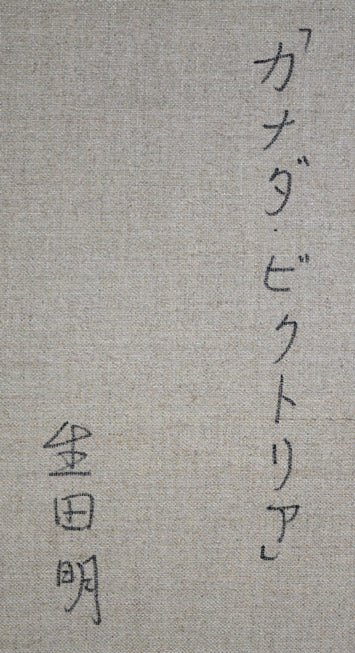 「カナダ・ビクトリア」
生田明